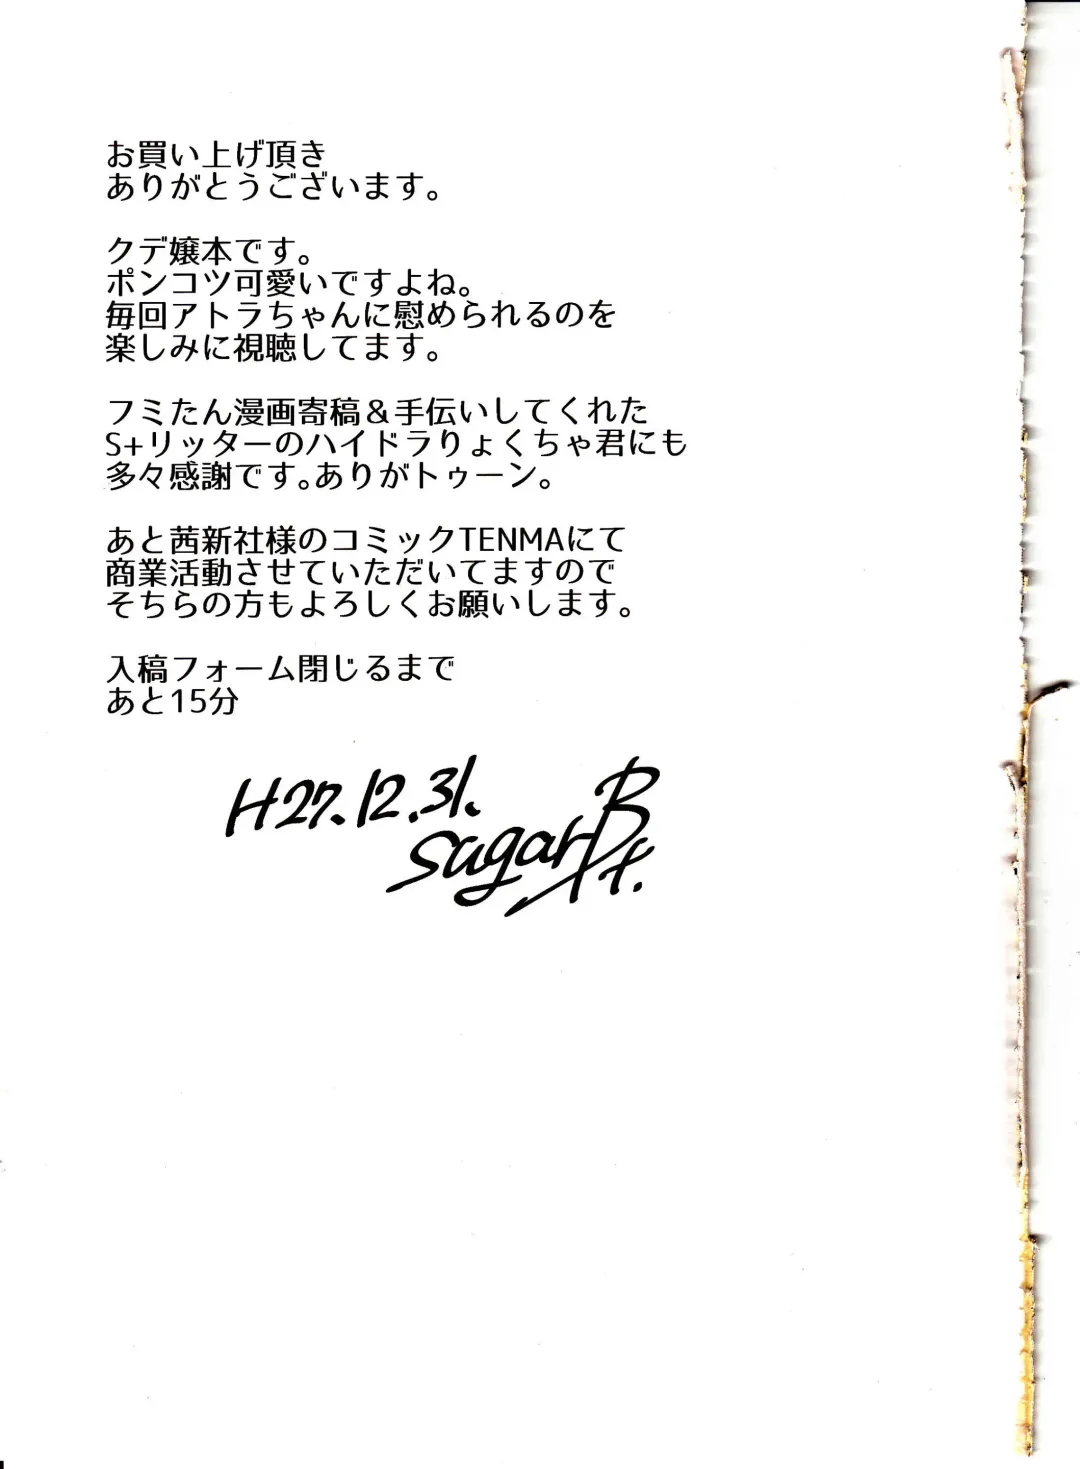 お買い上げ頂き
ありがとうございます。
クデ嬢本です。
ポンコツ可愛いですよね。
毎回アトラちゃんに慰められるのを
楽しみに視聴してます。
フミたん漫画寄稿＆手伝いしてくれた
S+リッターのハイドラりょくちゃ君にも
多々感謝です。ありがトゥーン。
あと茜新社様のコミックTENMAにて
商業活動させていただいてますので
そちらの方もよろしくお願いします。
入稿フォーム閉じるまで
あと15分
H27.12.31.
sagar